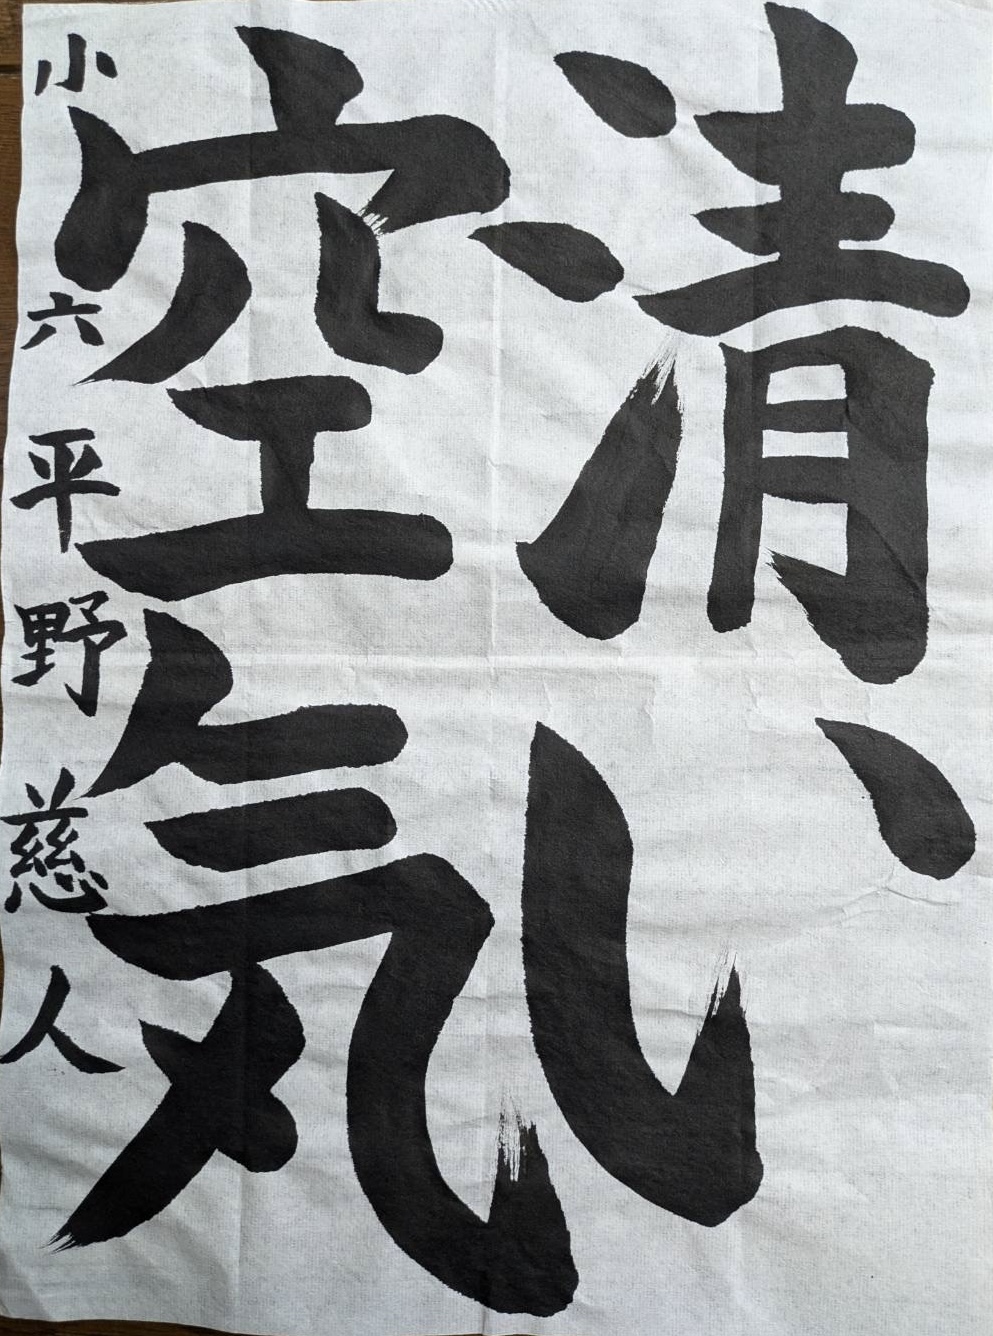 清い
空気
小六 平野慈人